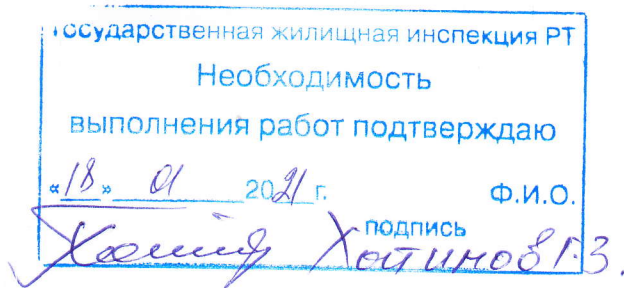 Государственная жилищная инспекция РТ
Необходимость
выполнения работ подтверждаю
«18» 01 2021 г. Ф.И.О.
подпись
Г.З.